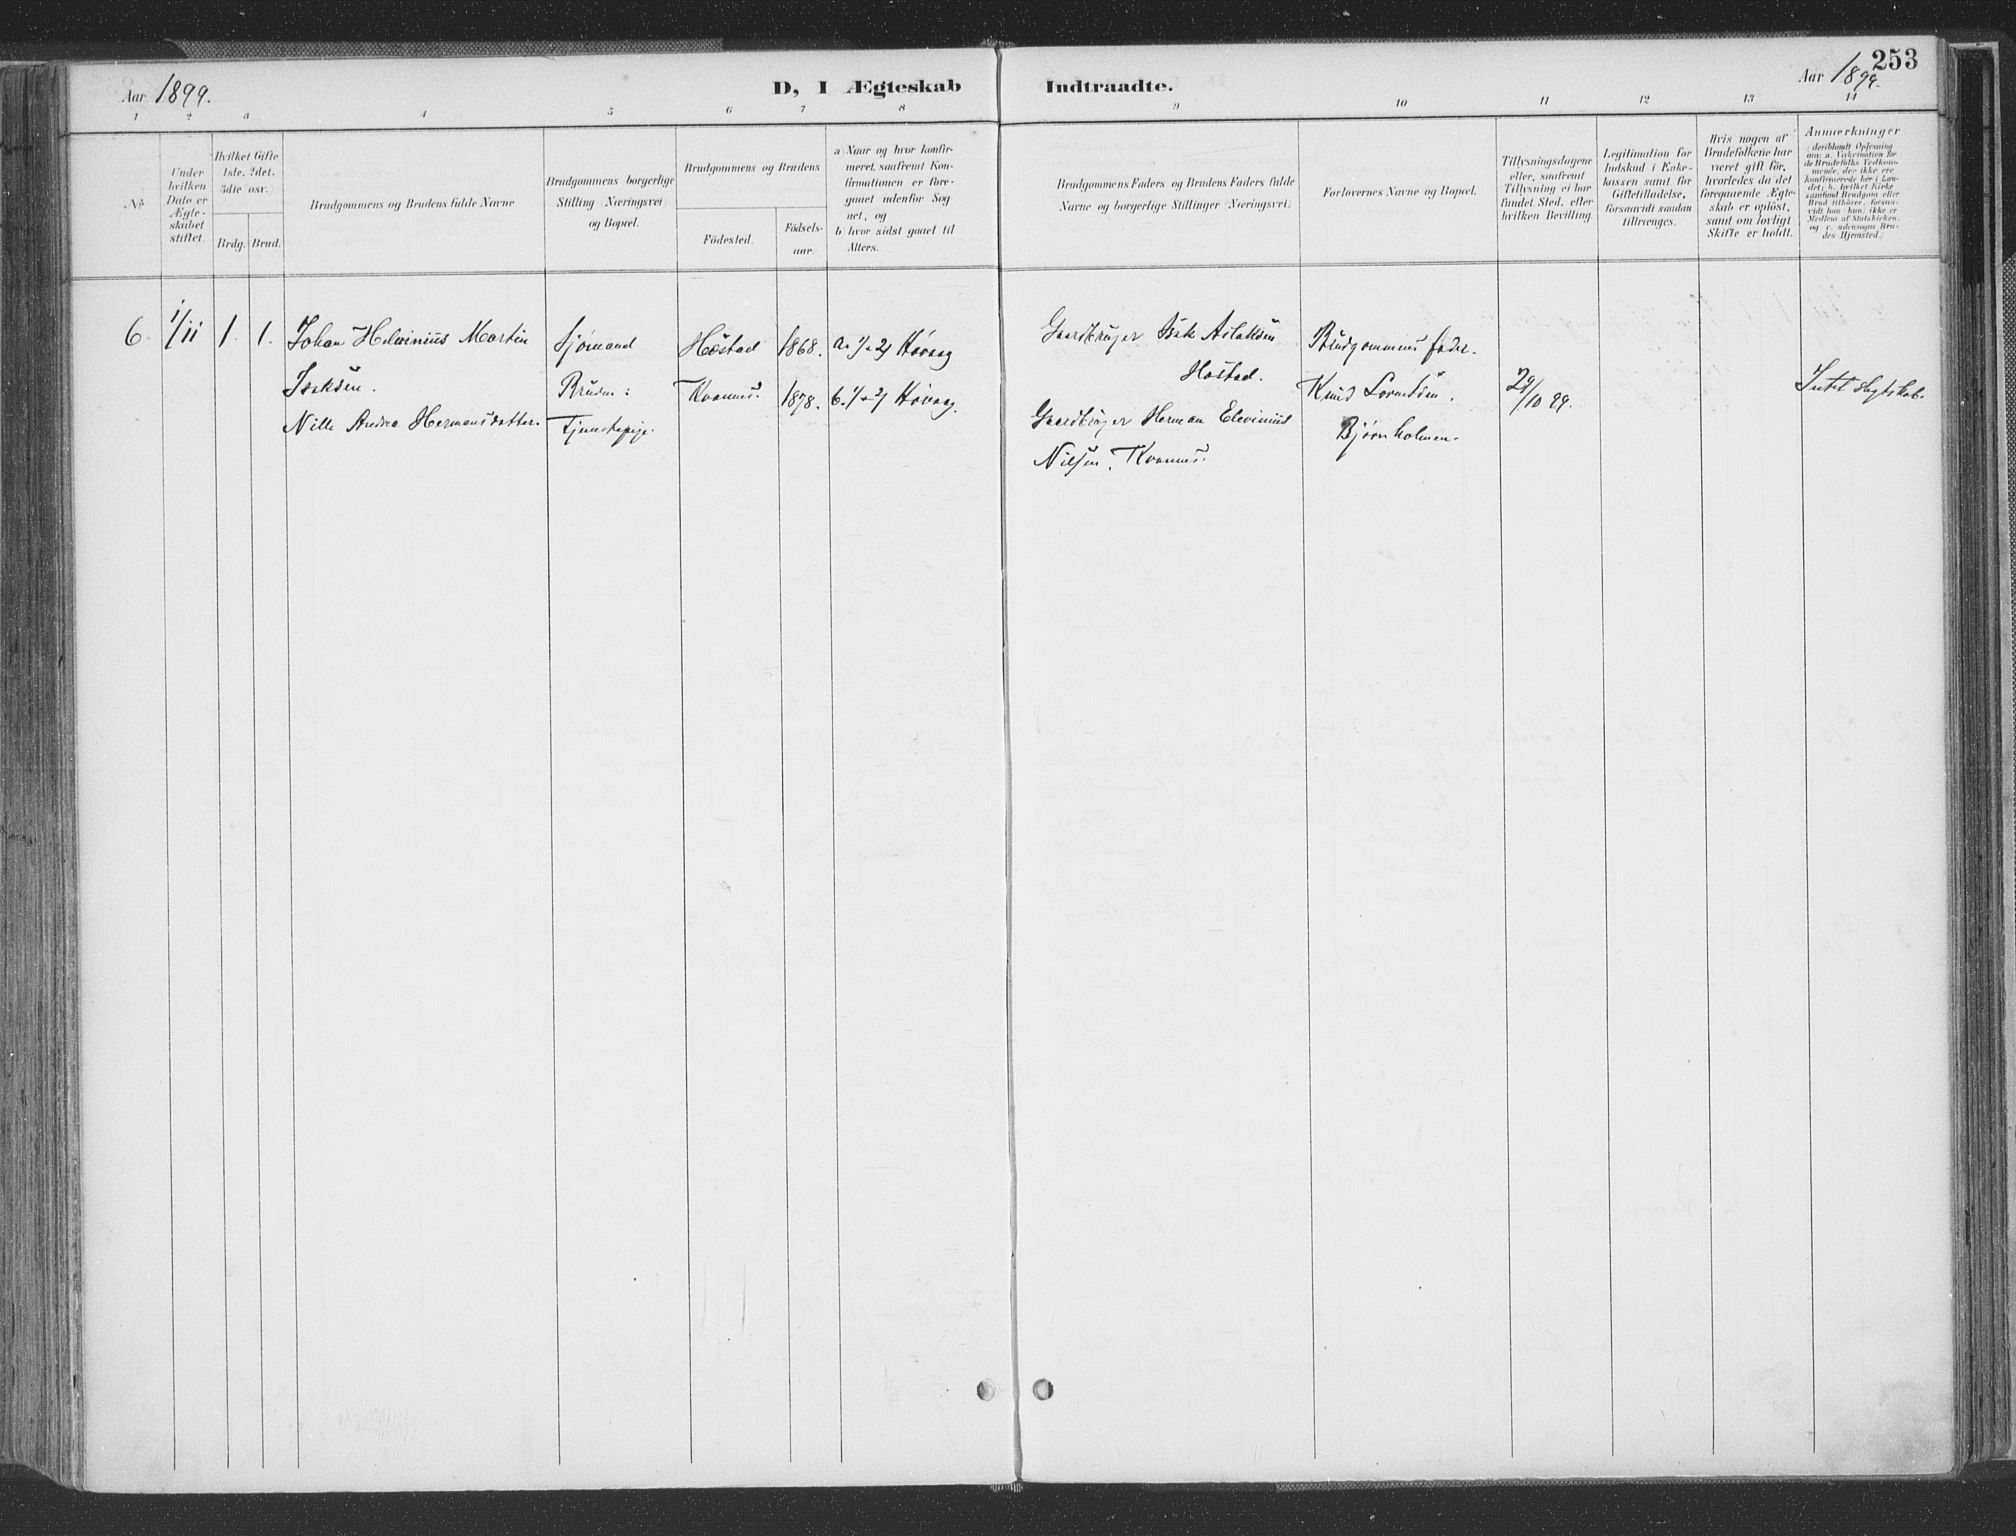 253
Aar 1899.
D, I Ægteskab Indtraadte.
Aar 1899.
1 2 3 4 5 6 7 8 9 10 11 12 13 14
No
Under hvilken Dato er Ægteskabet stiftet.
Hvilket Gifte 1ste, 2det, 3die osv.
Brdg. Brud.
Brudgommens og Brudens fulde Navne
Brudgommens borgerlige Stilling (Næringsvei) og Bopæl.
Brudgommens og Brudens
Födested.
Födselsaar.
a) Naar og hvor konfirmeret, saafremt Konfirmationen er foregaaet udenfor Sognet, og
b) hvor sidst gaaet til Alters.
Brudgommens Faders og Brudens Faders fulde Navne og borgerlige Stillinger (Næringsvei).
Forlovernes Navne og Bopæl.
Tillysningsdagene eller, saafremt Tillysning ei har fundet Sted, efter hvilken Bevilling.
Legitimation for Indskud i Enkekassen samt for Giftetilladelse, forsaavidt saadan tiltrænges.
Hvis nogen af Brudefolkene har været gift för, hvorledes da det foregaaende Ægteskab er oplöst, samt om lovligt Skifte er holdt.
Anmærkninger
(deriblandt Oplysning om: a. Vakcination for de Brudefolks Vedkommende, der ikke ere konfirmerede her i Landet; b. hvilket Kirkesamfund Brudgom eller Brud tilhører, forsaavidt han (hun) ikke er Medlem af Statskirken, og c. udensogns Brudes Hjemsted.)
6 1/11 1. 1. Johan Helevinius Martin
Isaksen.
Nille Andrea Hermansdatter.
Sjømand
Bruden:
Tjenestepige.
Høstad
Kvannes
1868.
1878.
a. 1/- 24 Høvaag
b. 1/- 24 Høvaag.
Gaardbruger Isak Aslaksen
Høstad.
Gaardbruger Herman Elevinius
Nilsen, Kvannes.
Brudgommens fader.
Knud
Bjørnholmen.
29/10 99.
Intet slegtskab.